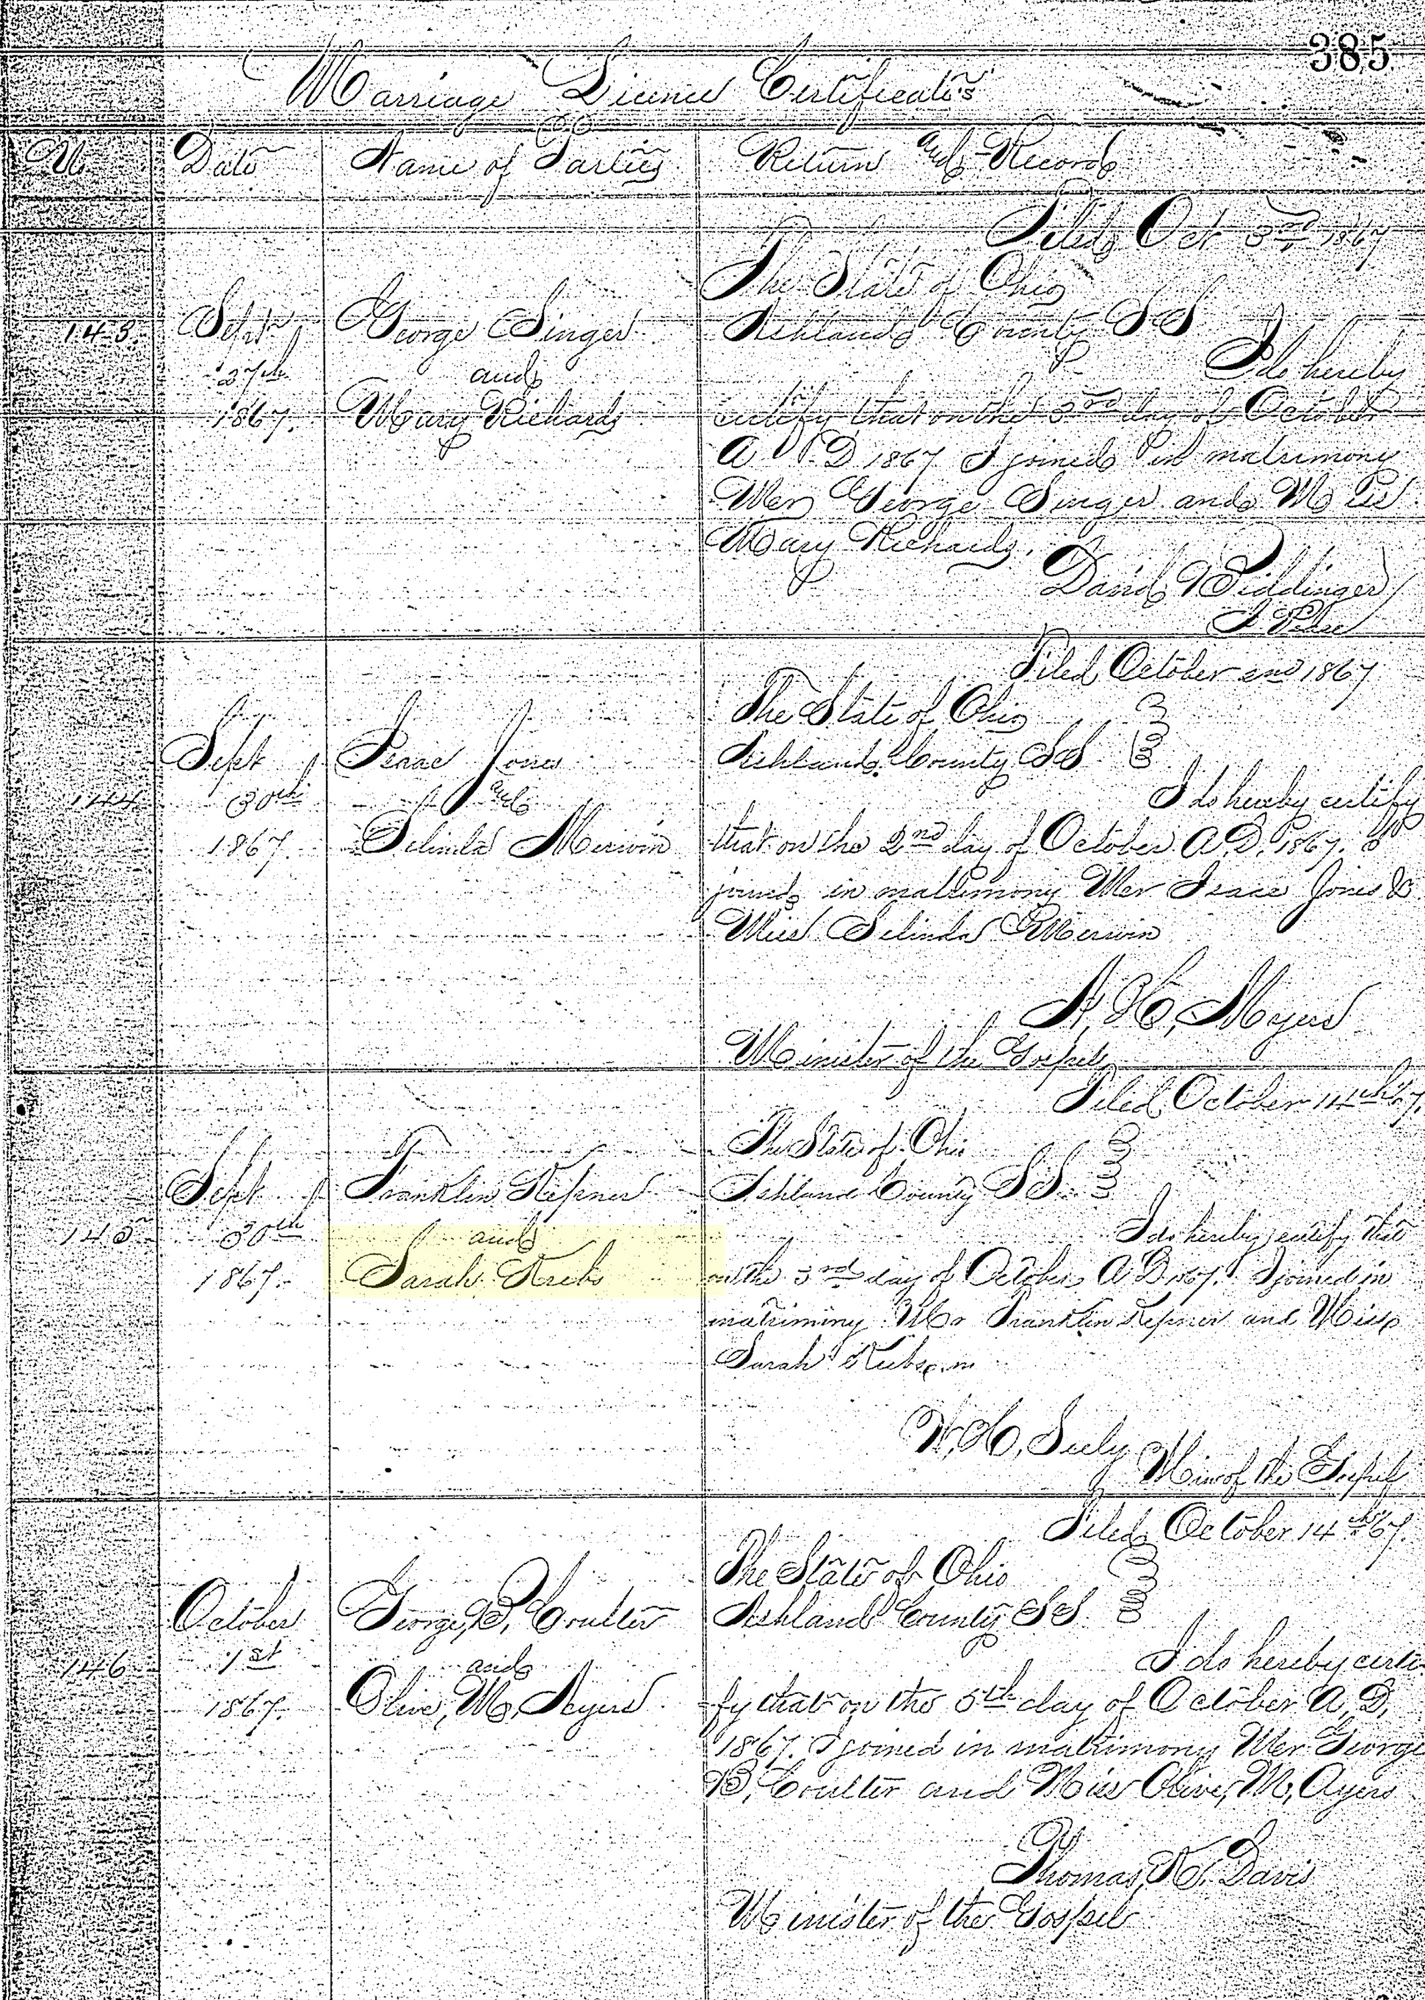 385
Marriage Licence Certificates
No. Date Name of Parties Return and Record
Filed Oct 3rd 1867
The State of Ohio
Ashland County SS
143. Sept 27th 1867. George Singer and Mary Richards
I do hereby
certify that on the 3rd day of October
A D 1867 I joined in matrimony
Mr George Singer and Miss
Mary Richards.
David Biddinger
J Peace
Filed October 2nd 1867
The State of Ohio
Ashland County SS
144 Sept 30th 1867 Isaac Jones and Selinda Merwin
I do hereby certify
that on the 2nd day of October A.D. 1867. I
joined in matrimony Mr Isaac Jones &
Miss Selinda Merwin
H. Myers
Minister of the Gospel
Filed October 14th 67
The State of Ohio
Ashland County SS
145 Sept 30th 1867. Franklin Kepner and Sarah Krebs
I do hereby certify that
on the 3rd day of October A D 1867. I joined in
matrimony Mr Franklin Kepner and Miss
Sarah Krebs
W. H. Seely
Min of the Gospel
Filed October 14th 67.
The State of Ohio
Ashland County SS
146 October 1st 1867. George, B, Coulter and Olive, M, Ayers
I do hereby certi-
fy that on the 5th day of October A, D,
1867. I joined in matrimony Mr George
B, Coulter and Miss Olive, M, Ayers
Thomas, K. Davis
Minister of the Gospel